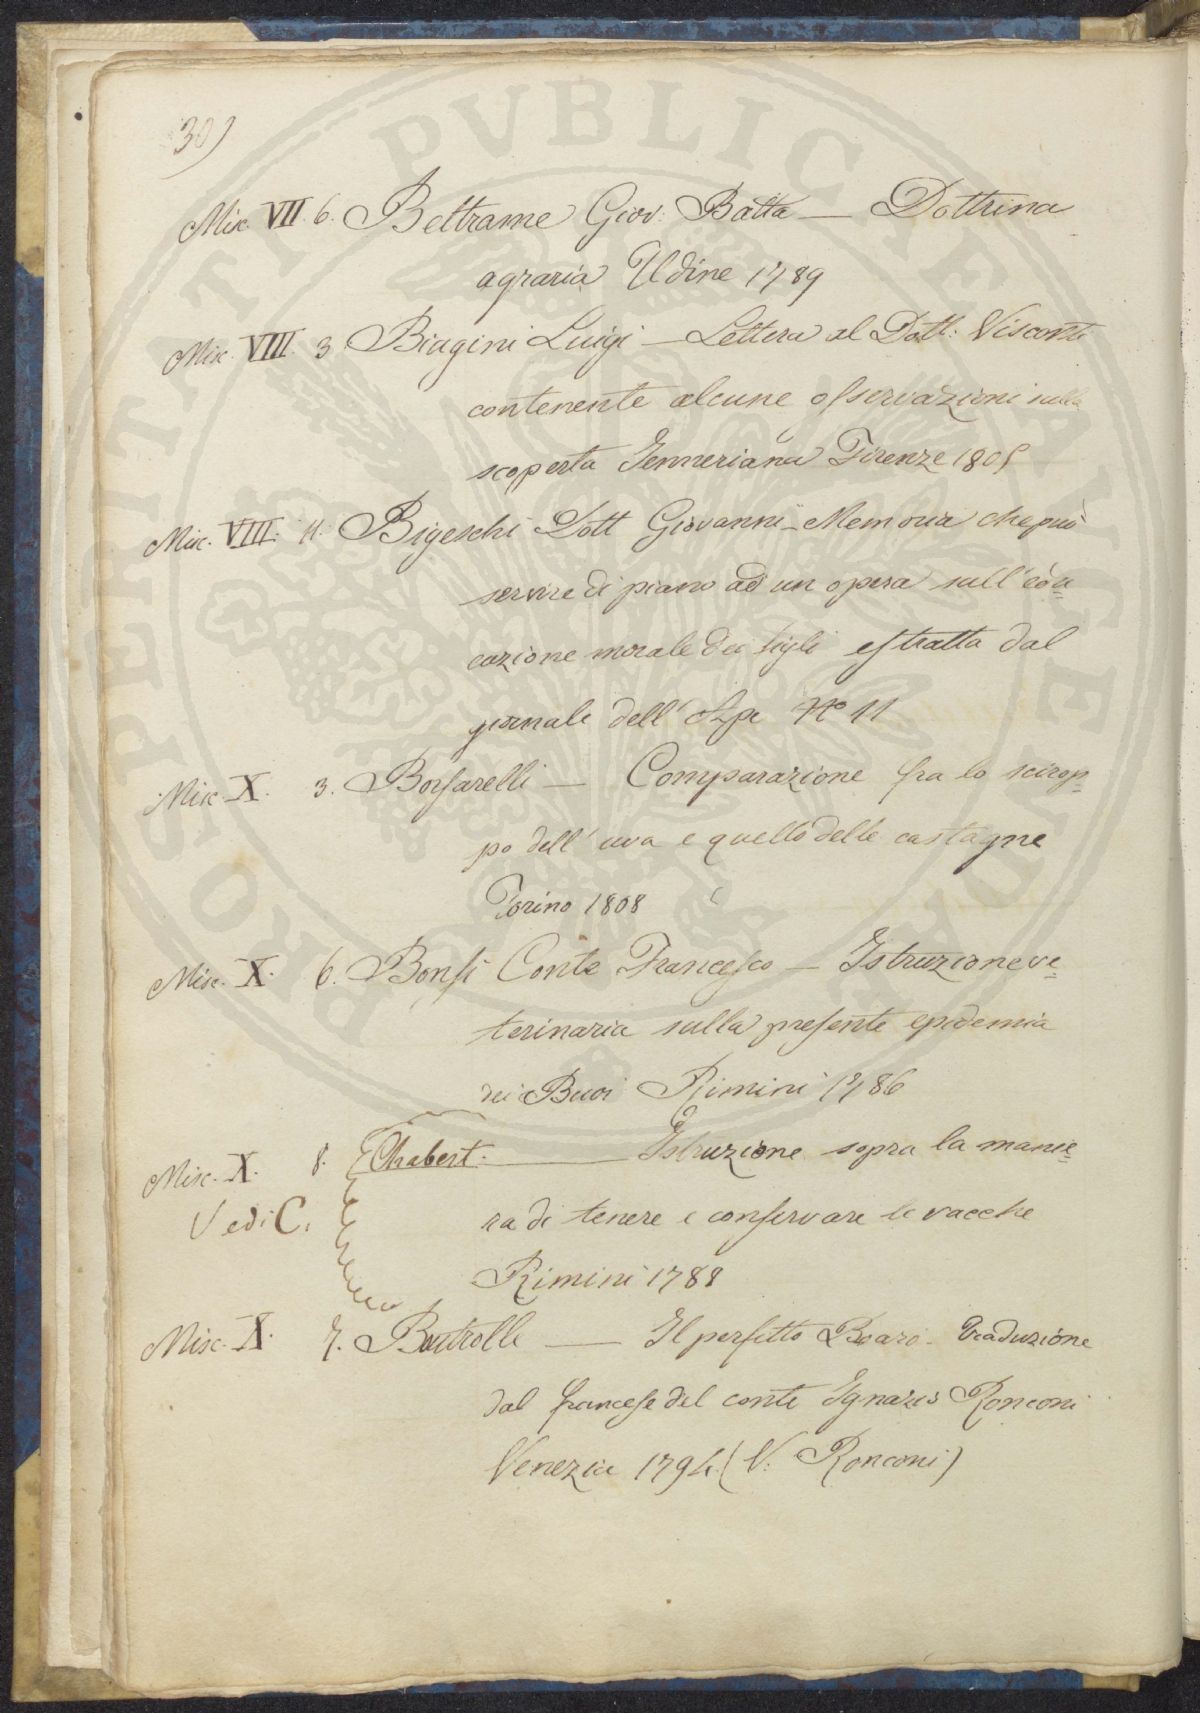 30)
Misc. VII. 6. Beltrame Giov: Batta — Dottrina
agraria Udine 1789
Misc. VIII. 3 Biagini Luigi — Lettera al Dott: Visconti
contenente alcune osservazioni sulla
scoperta Jenneriana Firenze 1805
Misc. VIII. 11. Bigeschi Dott Giovanni — Memoria che può
servire di piano ad un opera sull'edu=
cazione morale dei figli estratta dal
giornale dell' Ape No 11
Misc X. 3. Borsarelli — Comparazione fra lo scirop=
po dell' uva e quello delle castagne
Torino 1808
Misc. X. 6. Bonsi Conte Francesco — Istruzione ve=
terinaria sulla presente epidemia
dei Buoi Rimini 1786
Misc. X. 8. Chabert. — Istruzione sopra la manie=
Vedi C. ra di tenere e conservare le vacche
Rimini 1788
Misc. X. 7. Boutrolle — Il perfetto Boaro. Traduzione
dal francese del conte Ignazio Ronconi
Venezia 1794. (V. Ronconi)